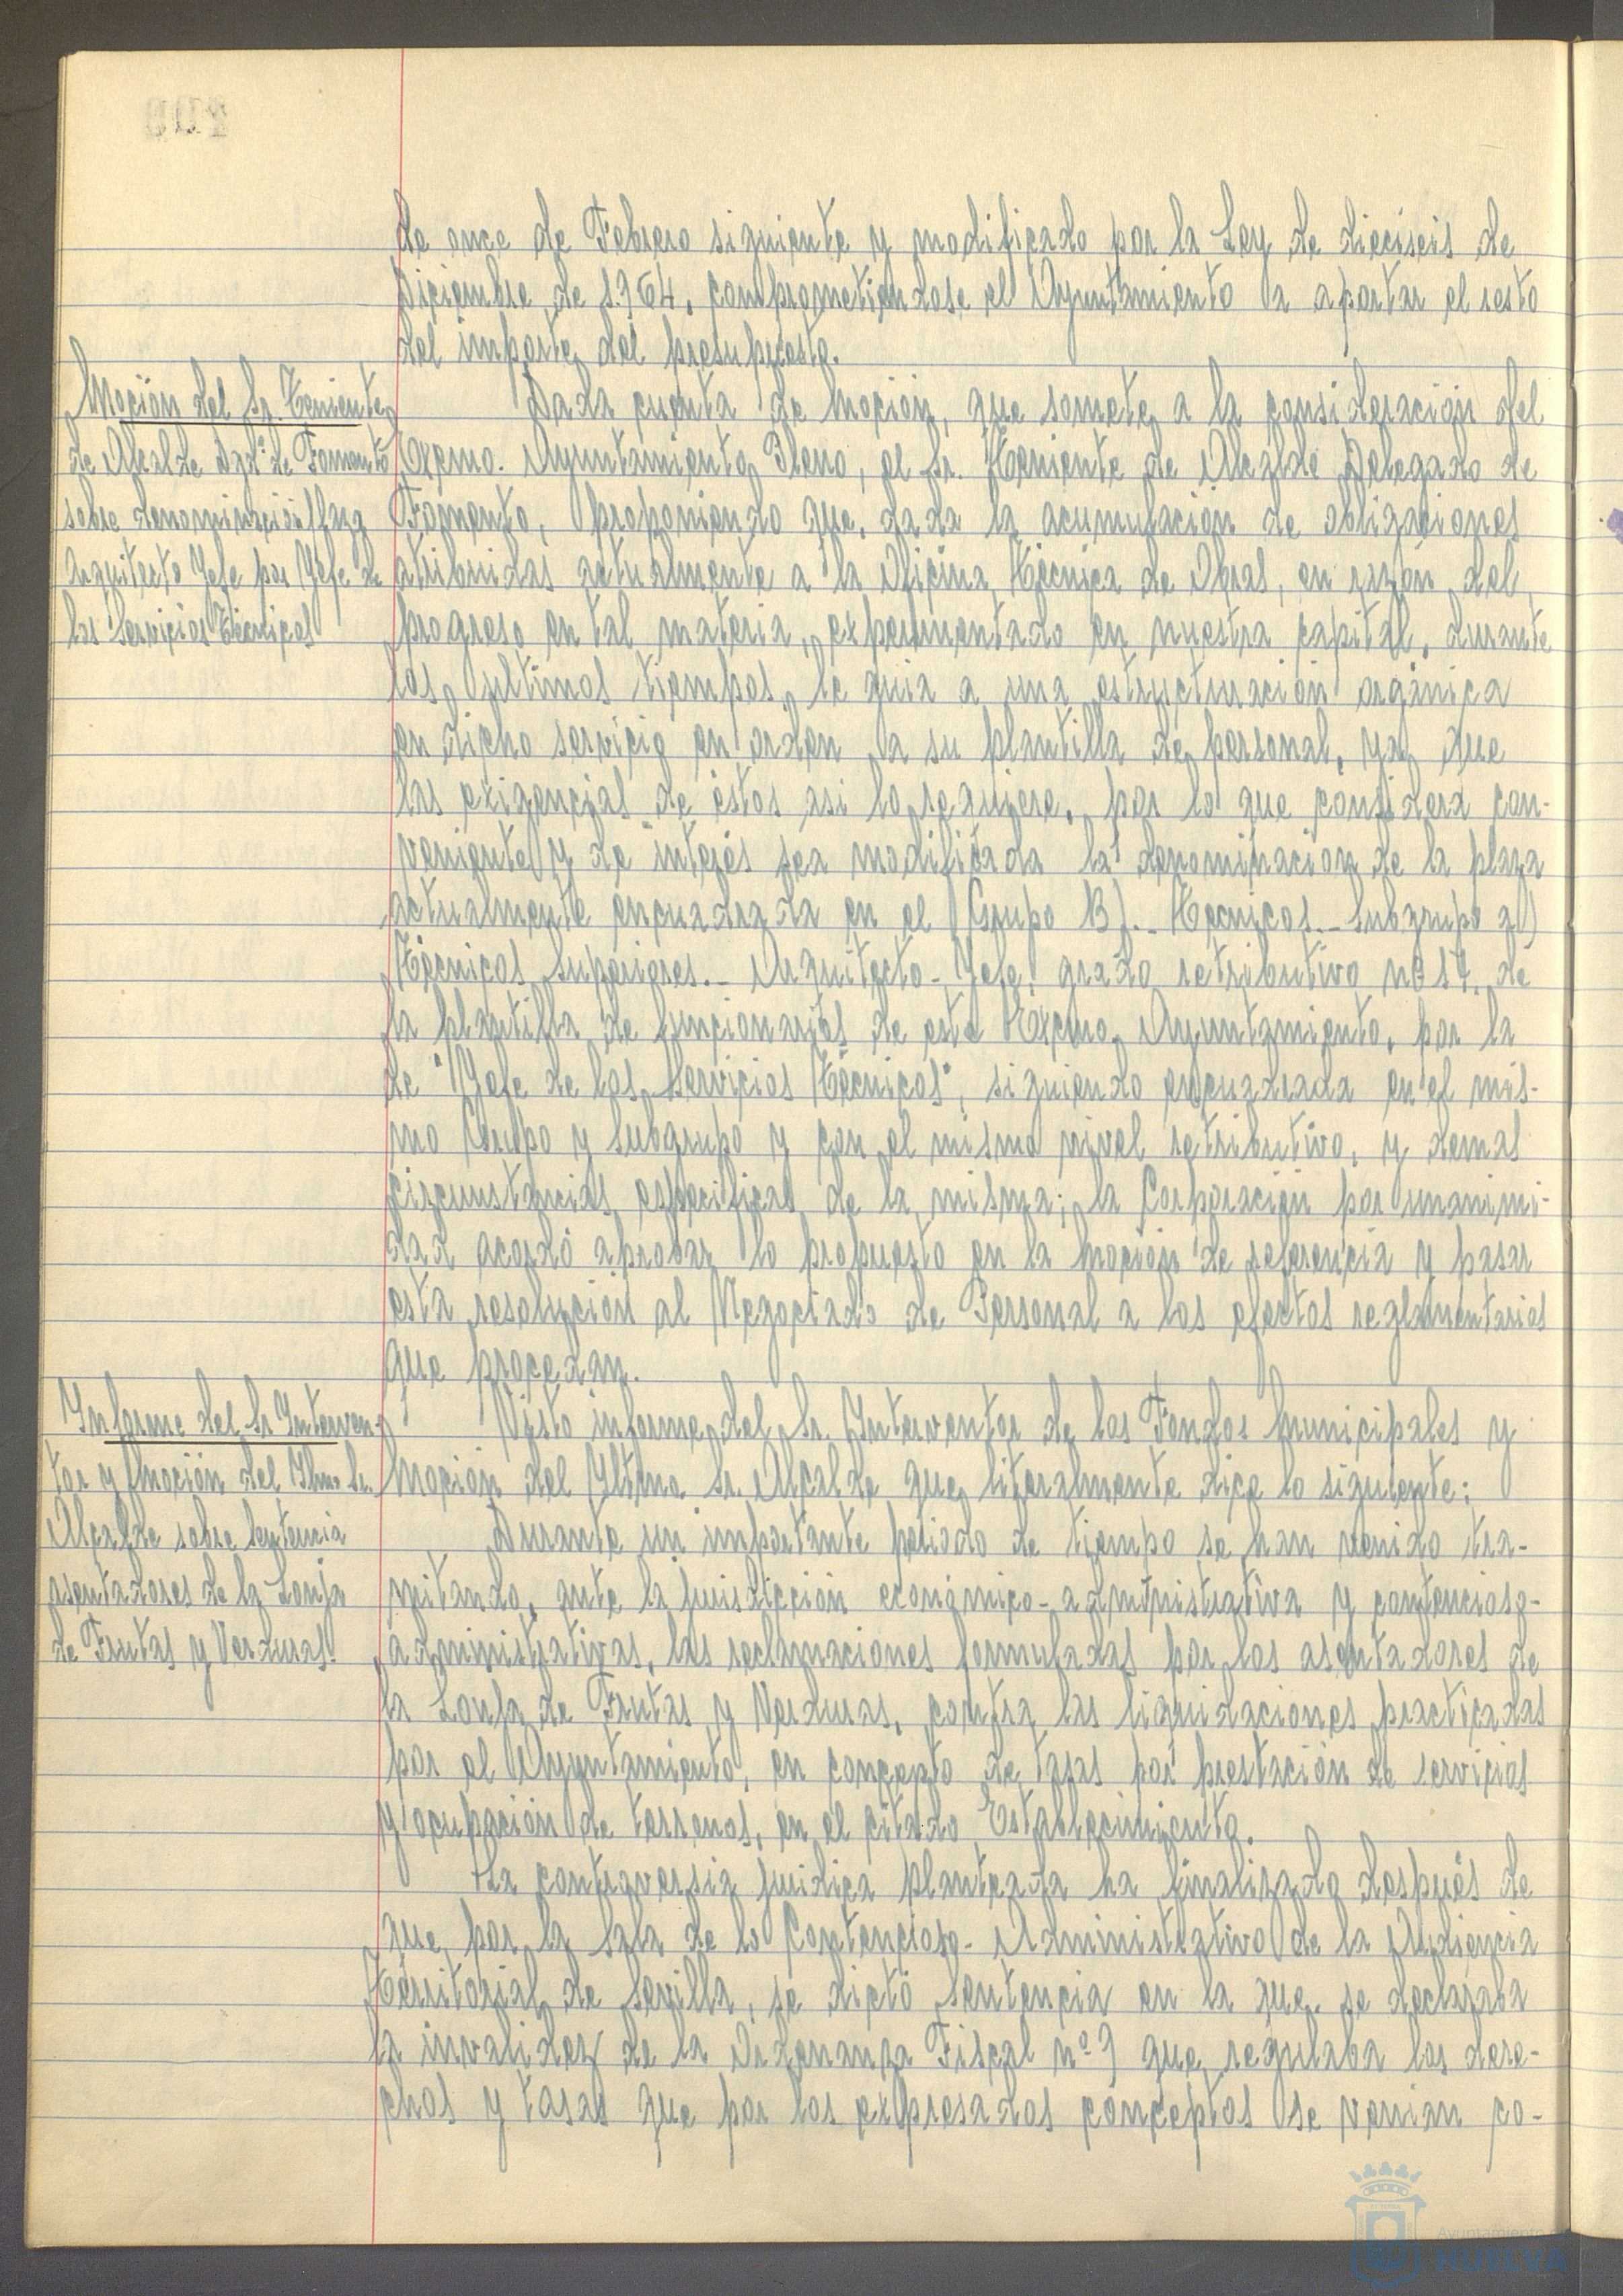 de once de Febrero siguiente y modificado por la Ley de dieciseis de
Diciembre de 1.964, comprometiendose el Ayuntamiento a aportar el resto
del importe del presupuesto.
Moción del Sr. Teniente
de Alcalde Dgdº de Fomento
sobre denominación plaza
Arquitecto Jefe por Jefe de
los Servicios Técnicos
Dada cuenta de moción, que somete a la consideración del
Excmo. Ayuntamiento Pleno, el Sr. Teniente de Alcalde Delegado de
Fomento, proponiendo que, dada la acumulación de obligaciones
atribuidas actualmente a la Oficina Técnica de Obras, en razón del
progreso en tal materia, experimentado en nuestra capital, durante
los ultimos tiempos, le guia a una estructuración orgánica
en dicho servicio en orden a su plantilla de personal, ya que
las exigencias de éstos asi lo requiere, por lo que considera con-
veniente y de interés sea modificada la denominación de la plaza
actualmente encuadrada en el Grupo B).- Técnicos.- Subgrupo a)
Técnicos Superiores.- Arquitecto-Jefe, grado retributivo nº 17, de
la plantilla de funcionarios de este Excmo. Ayuntamiento, por la
de "Jefe de los Servicios Técnicos", siguiendo encuadrada en el mis-
mo Grupo y Subgrupo y con el mismo nivel retributivo, y demas
circunstancias especificas de la misma; la Corporación por unanimi-
dad acordó aprobar lo propuesto en la moción de referencia y pasar
esta resolución al Negociado de Personal a los efectos reglamentarios
que procedan.
Informe del Sr. Interven-
tor y moción del Iltmo Sr.
Alcalde sobre Sentencia
asentadores de la Lonja
de Frutas y Verduras.
Visto informe del Sr. Interventor de los Fondos Municipales y
moción del Iltmo. Sr. Alcalde que literalmente dice lo siguiente:
Durante un importante periodo de tiempo se han venido tra-
mitando, ante la jurisdicción económico-administrativa y contencioso-
administrativas, las reclamaciones formuladas por los asentadores de
la Lonja de Frutas y Verduras, contra las liquidaciones practicadas
por el Ayuntamiento, en concepto de tasas por prestación de servicios
y ocupación de terrenos, en el citado Establecimiento.
La controversia juridica planteada ha finalizado después de
que, por la Sala de lo Contencioso-Administrativo de la Audiencia
Territorial de Sevilla, se dictó Sentencia en la que se declaraba
la invalidez de la Ordenanza Fiscal nº 9 que regulaba los dere-
chos y tasas que por los expresados conceptos se venian co-
Ayuntamiento
HUELVA